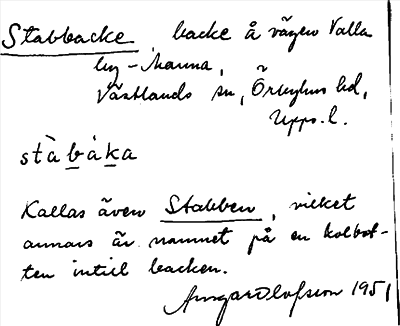 Stabbacke, backe å vägen Valla
by - Manna,
Västlands sn, Örbyhus hd,
Upps. l.
stàbàka
Kallas även Stabben, vilket
annars är namnet på en kolbot-
ten intill backen.
Ansgar Olofsson 1951